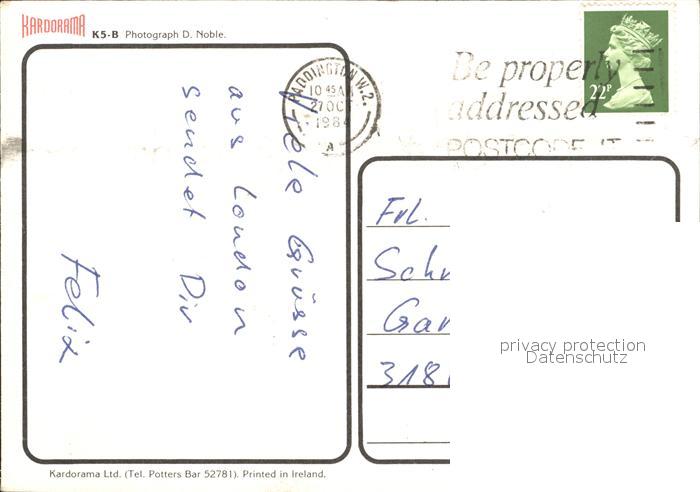 KARDORAMA K5-B Photograph D. Noble.
Viele Grüsse
aus London
sendet Dir
Felix
PADDINGTON W.2.
10 45 AM
27 OCT
1984
A
Be properly
addressed
POSTCODE IT
22P
Frl.
Schr
Gar
318
privacy protection
Datenschutz
Kardorama Ltd. (Tel. Potters Bar 52781). Printed in Ireland.